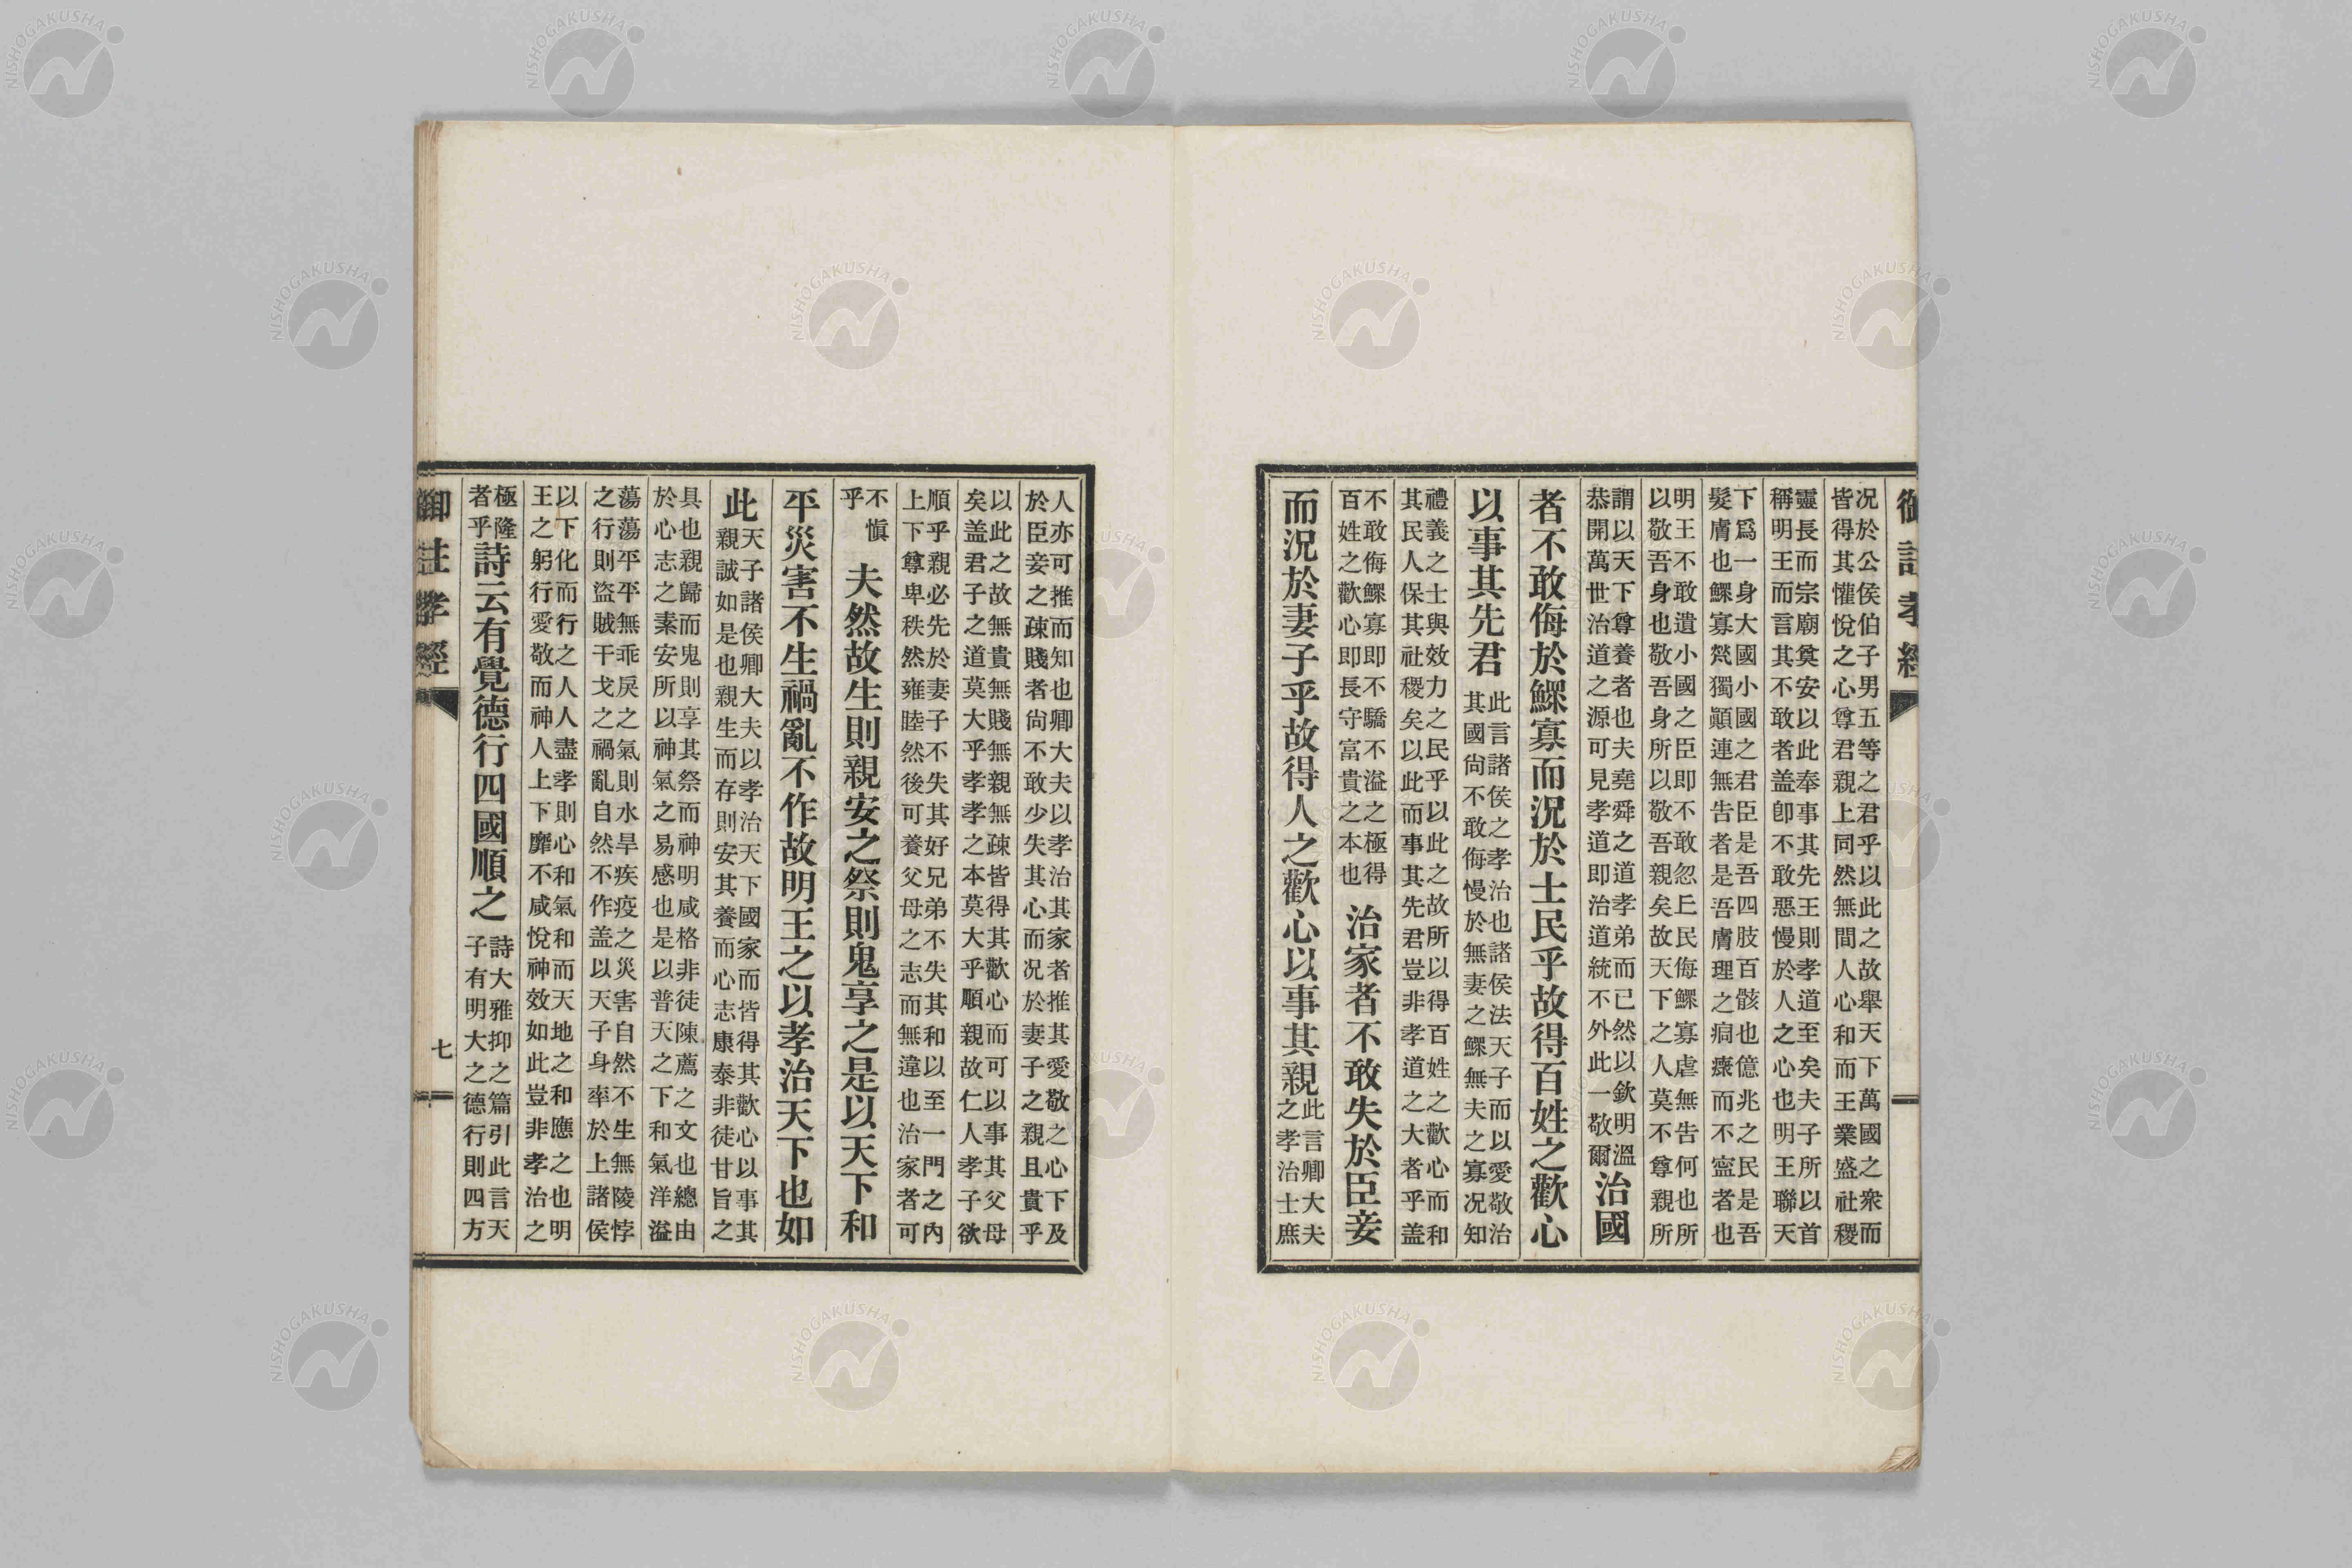 御註孝經
况於公侯伯子男五等之君乎以此之故舉天下萬國之衆而
皆得其懽悅之心尊君親上同然無間人心和而王業盛社稷
靈長而宗廟奠安以此奉事其先王則孝道至矣夫子所以首
稱明王而言其不敢者盖卽不敢惡慢於人之心也明王聯天
下爲一身大國小國之君臣是吾四肢百骸也億兆之民是吾
髮膚也鰥寡焭獨顚連無告者是吾膚理之痌瘝而不寍者也
明王不敢遺小國之臣即不敢忽上民侮鰥寡虐無告何也所
以敬吾身也敬吾身所以敬吾親矣故天下之人莫不尊親所
謂以天下尊養者也夫堯舜之道孝弟而已然以欽明溫
恭開萬世治道之源可見孝道即治道統不外此一敬爾
治國
者不敢侮於鰥寡而況於士民乎故得百姓之歡心
以事其先君
此言諸侯之孝治也諸侯法天子而以愛敬治
其國尙不敢侮慢於無妻之鰥無夫之寡况知
禮義之士與效力之民乎以此之故所以得百姓之歡心而和
其民人保其社稷矣以此而事其先君豈非孝道之大者乎盖
不敢侮鰥寡即不驕不溢之極得
百姓之歡心即長守富貴之本也
治家者不敢失於臣妾
而況於妻子乎故得人之歡心以事其親
此言卿大夫
之孝治士庶
人亦可推而知也卿大夫以孝治其家者推其愛敬之心下及
於臣妾之疎賤者尙不敢少失其心而况於妻子之親且貴乎
以此之故無貴無賤無親無疎皆得其歡心而可以事其父母
矣盖君子之道莫大乎孝孝之本莫大乎順親故仁人孝子欲
順乎親必先於妻子不失其好兄弟不失其和以至一門之內
上下尊卑秩然雍睦然後可養父母之志而無違也治家者可
不愼
乎
夫然故生則親安之祭則鬼享之是以天下和
平災害不生禍亂不作故明王之以孝治天下也如
此
天子諸侯卿大夫以孝治天下國家而皆得其歡心以事其
親誠如是也親生而存則安其養而心志康泰非徒甘旨之
具也親歸而鬼則享其祭而神明咸格非徒陳薦之文也總由
於心志之素安所以神氣之易感也是以普天之下和氣洋溢
蕩蕩平平無乖戾之氣則水旱疾疫之災害自然不生無陵悖
之行則盜賊干戈之禍亂自然不作盖以天子身率於上諸侯
以下化而行之人人盡孝則心和氣和而天地之和應之也明
王之躬行愛敬而神人上下靡不咸悅神效如此豈非孝治之
極隆
者乎
詩云有覺德行四國順之
詩大雅抑之篇引此言天
子有明大之德行則四方
御註孝經
七